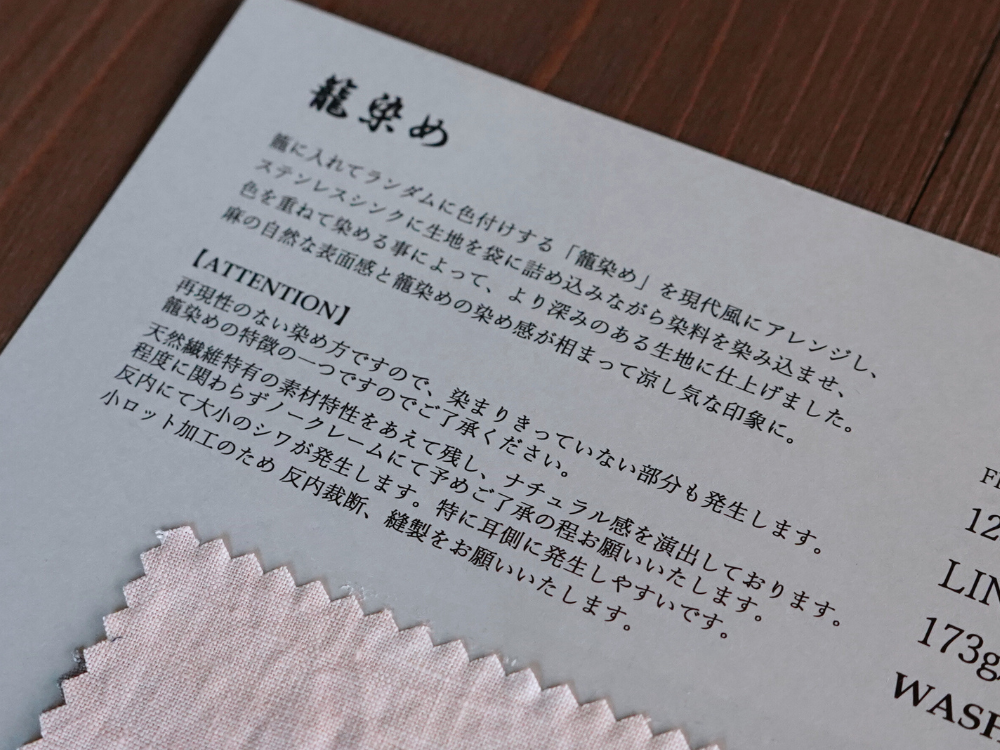 籠染め
籠に入れてランダムに色付けする「籠染め」を現代風にアレンジし、
ステンレスシンクに生地を袋に詰め込みながら染料を染み込ませ、
色を重ねて染める事によって、より深みのある生地に仕上げました。
麻の自然な表面感と籠染めの染め感が相まって涼し気な印象に。
【ATTENTION】
再現性のない染め方ですので、染まりきっていない部分も発生します。
籠染めの特徴の一つですのでご了承ください。
天然繊維特有の素材特性をあえて残し、ナチュラル感を演出しております。
程度に関わらずノークレームにて予めご了承の程お願いいたします。
反内にて大小のシワが発生します。特に耳側に発生しやすいです。
小ロット加工のため 反内裁断、縫製をお願いいたします。
12
LIN
173g
WASH